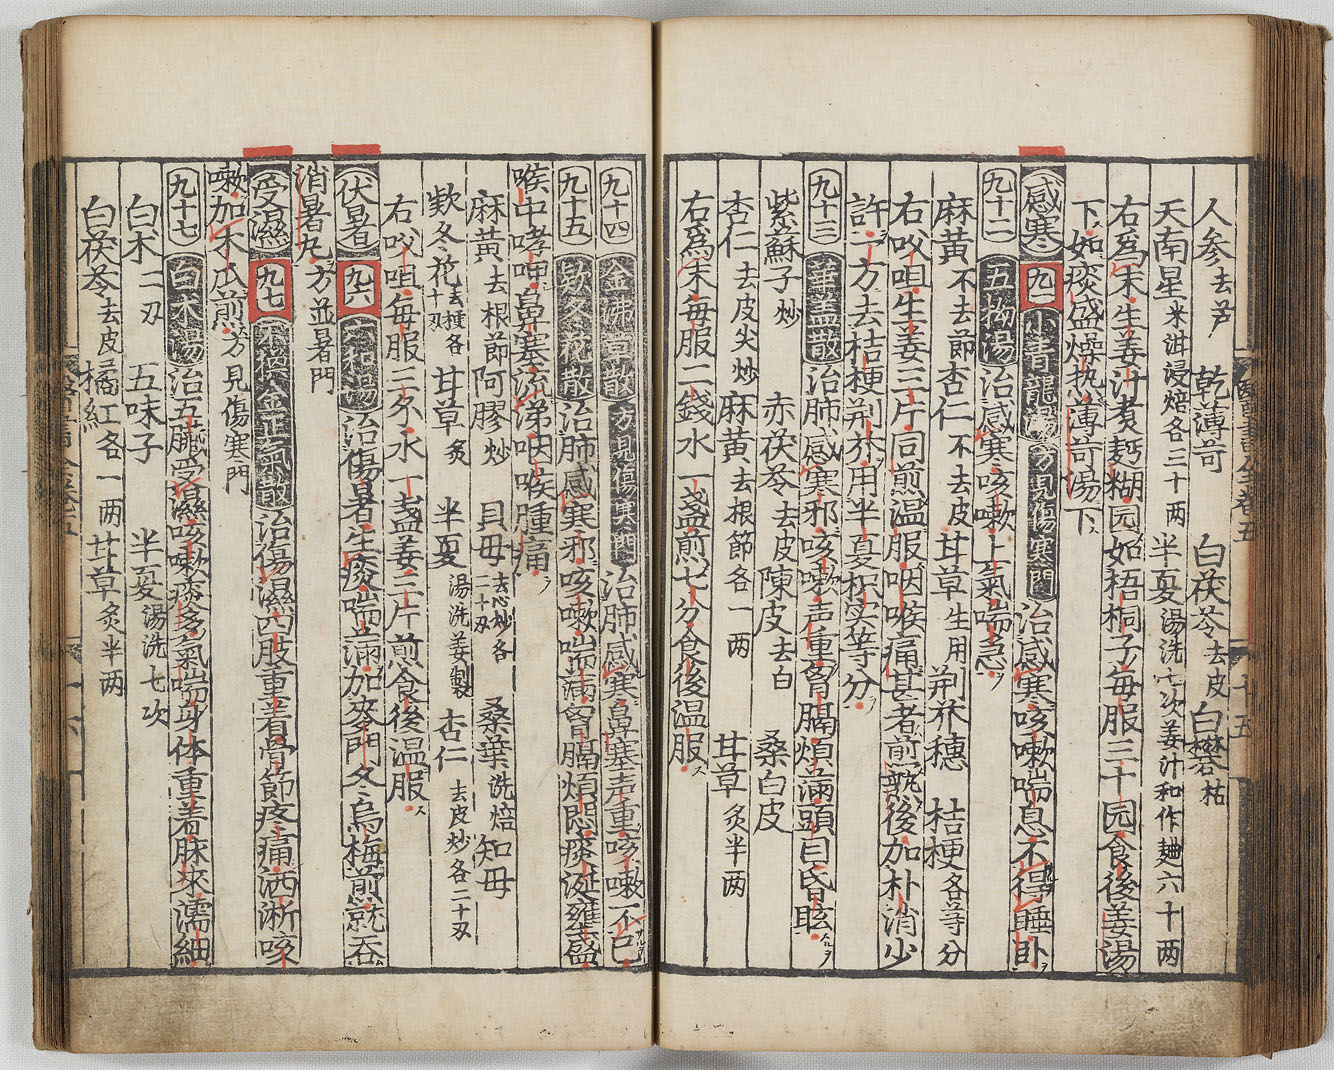 人参去芦 乾薄苛 白茯苓去皮 白礬枯
天南星米泔浸焙各三十两 半夏湯洗七次姜汁和作麯六十两
右爲末生姜汁煮麪糊园如梧桐子每服三十园食後姜湯
下如痰盛燥热薄苛湯下
感寒 九一 小青龍湯方見傷寒門 治感寒咳嗽喘息不得睡卧
九十二 五拗湯 治感寒咳嗽上氣喘急
麻黄不去節 杏仁不去皮 甘草生用 荆芥穗 桔梗各等分
右㕮咀生姜三片同煎温服咽喉痛甚者煎熟後加朴消少
許一方去桔梗荆芥用半夏枳实等分
九十三 華蓋散 治肺感寒邪咳嗽声重胷膈煩滿頭目昏眩
紫蘇子炒 赤茯苓去皮 陳皮去白 桑白皮
杏仁去皮尖炒 麻黄去根節各一两 甘草炙半两
右爲末每服二錢水一盞煎七分食後温服
九十四 金沸草散方見傷寒門 治肺感寒鼻塞声重咳嗽不已
九十五 欵冬花散 治肺感寒邪咳嗽喘滿胷膈煩悶痰涎壅盛
喉中哮呷鼻塞流涕咽喉腫痛
麻黄去根節 阿膠炒 貝母去心炒各二十刄 桑葉洗焙 知母
欵冬花去梗各十刄 甘草炙 半夏湯洗姜製 杏仁去皮炒各二十刄
右㕮咀每服三刄水一盞姜三片煎食後温服
伏暑 九六 六和湯 治傷暑生痰喘滿加麥門冬烏梅煎就吞
消暑丸方並暑門
受濕 九七 不換金正氣散 治傷濕四肢重着骨節疼痛洒淅咳
嗽加木瓜煎方見傷寒門
九十七 白术湯 治五臟受濕咳嗽痰多氣喘身体重着脉來濡細
白术二刄 五味子 半夏湯洗七次
白茯苓去皮 橘紅各一两 甘草炙半两